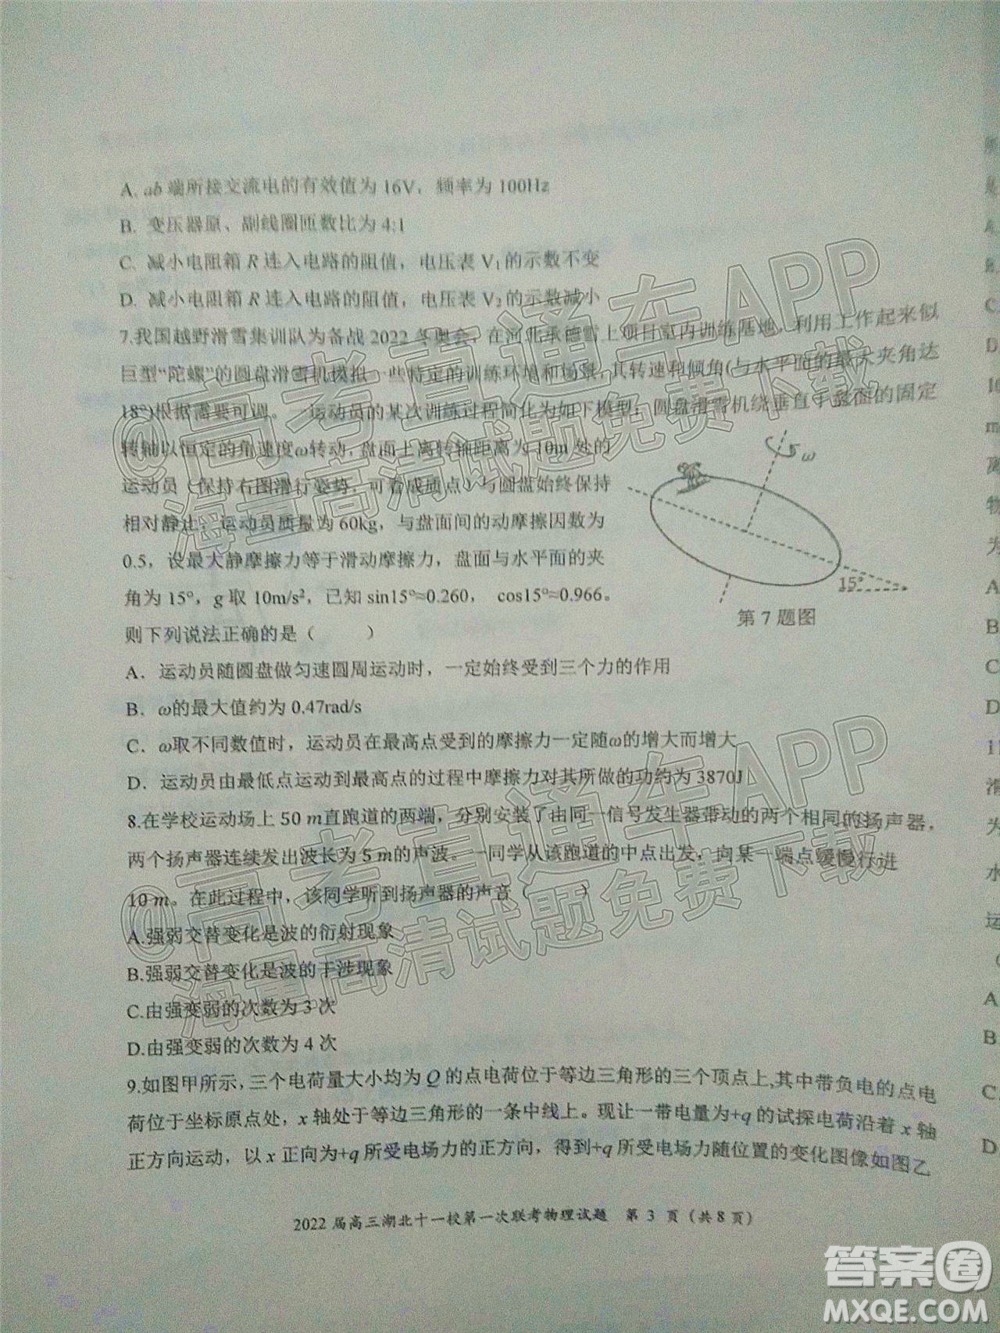 A. ab 端所接交流电的有效值为 16V，频率为 100Hz
B. 变压器原、副线圈匝数比为 4:1
C. 减小电阻箱 R 连入电路的阻值，电压表 V₁的示数不变
D. 减小电阻箱 R 连入电路的阻值，电压表 V₂的示数减小
7.我国越野滑雪集训队为备战 2022 冬奥会，在河北承德雪上项目室内训练基地，利用工作起来似
巨型“陀螺”的圆盘滑雪机模拟一些特定的训练环境和场景，其转速和倾角(与水平面的最大夹角达
18°)根据需要可调。一运动员的某次训练过程简化为如下模型：圆盘滑雪机绕垂直于盘面的固定
转轴以恒定的角速度ω转动，盘面上离转轴距离为 10m 处的
运动员（保持右图滑行姿势，可看成质点）与圆盘始终保持
相对静止，运动员质量为 60kg，与盘面间的动摩擦因数为
0.5，设最大静摩擦力等于滑动摩擦力，盘面与水平面的夹
角为 15°，g 取 10m/s²，已知 sin15°≈0.260， cos15°≈0.966。
则下列说法正确的是（ ）
ω
15°
第 7 题图
A．运动员随圆盘做匀速圆周运动时，一定始终受到三个力的作用
B．ω的最大值约为 0.47rad/s
C．ω取不同数值时，运动员在最高点受到的摩擦力一定随ω的增大而增大
D．运动员由最低点运动到最高点的过程中摩擦力对其所做的功约为 3870J
8.在学校运动场上 50 m直跑道的两端，分别安装了由同一信号发生器带动的两个相同的扬声器，
两个扬声器连续发出波长为 5 m的声波。一同学从该跑道的中点出发，向某一端点缓慢行进
10 m。在此过程中，该同学听到扬声器的声音（ ）
A.强弱交替变化是波的衍射现象
B.强弱交替变化是波的干涉现象
C.由强变弱的次数为 3 次
D.由强变弱的次数为 4 次
9.如图甲所示，三个电荷量大小均为 Q 的点电荷位于等边三角形的三个顶点上,其中带负电的点电
荷位于坐标原点处，x 轴处于等边三角形的一条中线上。现让一带电量为+q 的试探电荷沿着 x 轴
正方向运动，以 x 正向为+q 所受电场力的正方向，得到+q 所受电场力随位置的变化图像如图乙
2022 届高三湖北十一校第一次联考物理试题 第 3 页（共 8 页）
@高考直通车APP
海量高清试题免费下载
@高考直通车APP
海量高清试题免费下载
答案圈
MXQE.COM